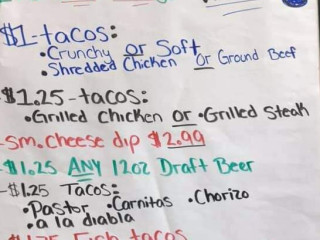 $1-tacos:
• Crunchy or Soft
• Shredded Chicken or Ground Beef
-$1.25-tacos:
• Grilled Chicken or • Grilled Steak
-Sm. Cheese dip $2.99
-$1.25 ANY 12oz Draft Beer
-$1.25 Tacos:
• Pastor • Carnitas • Chorizo
• a la diabla
$1.75 Fish tacos